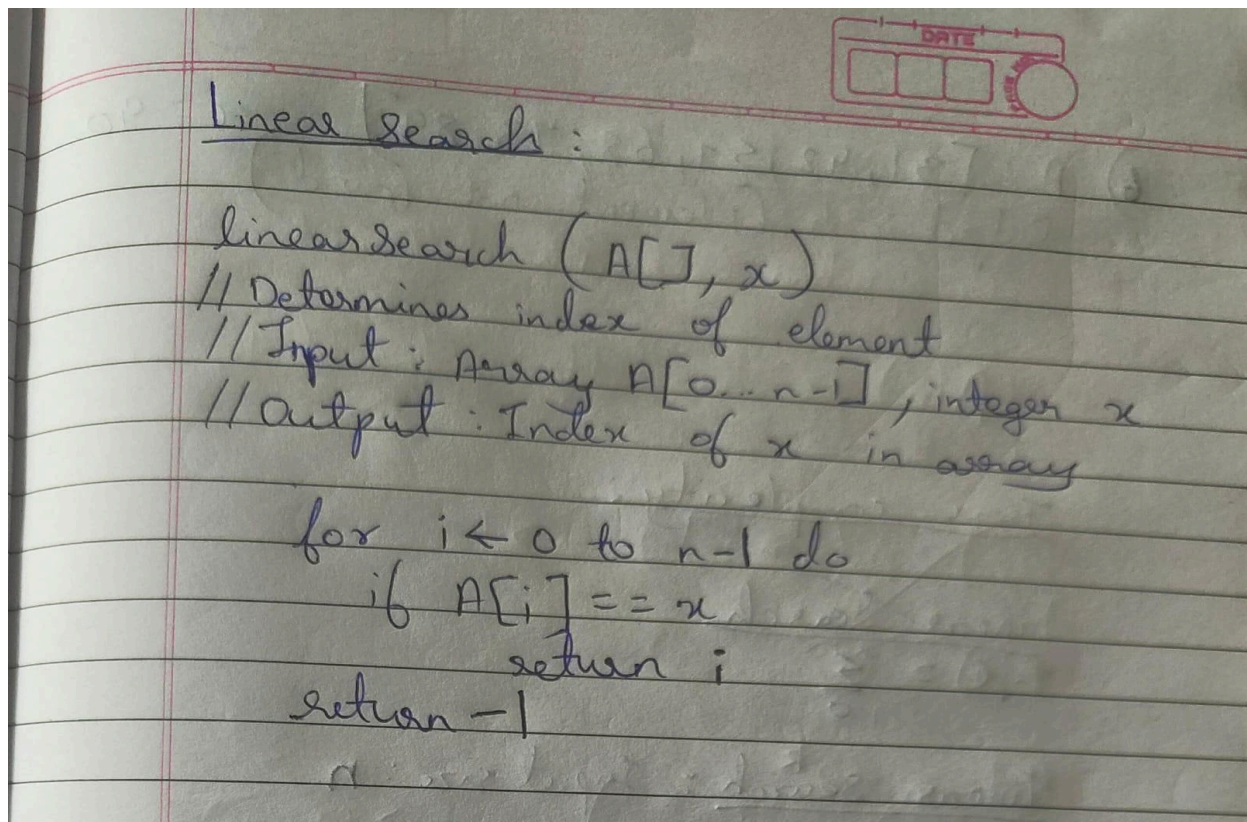 DATE
Linear search :
linearsearch (A[], x)
// Determines index of element
// Input : Array A[0...n-1], integer x
// Output : Index of x in array
for i ← 0 to n-1 do
if A[i] == x
return i
return -1